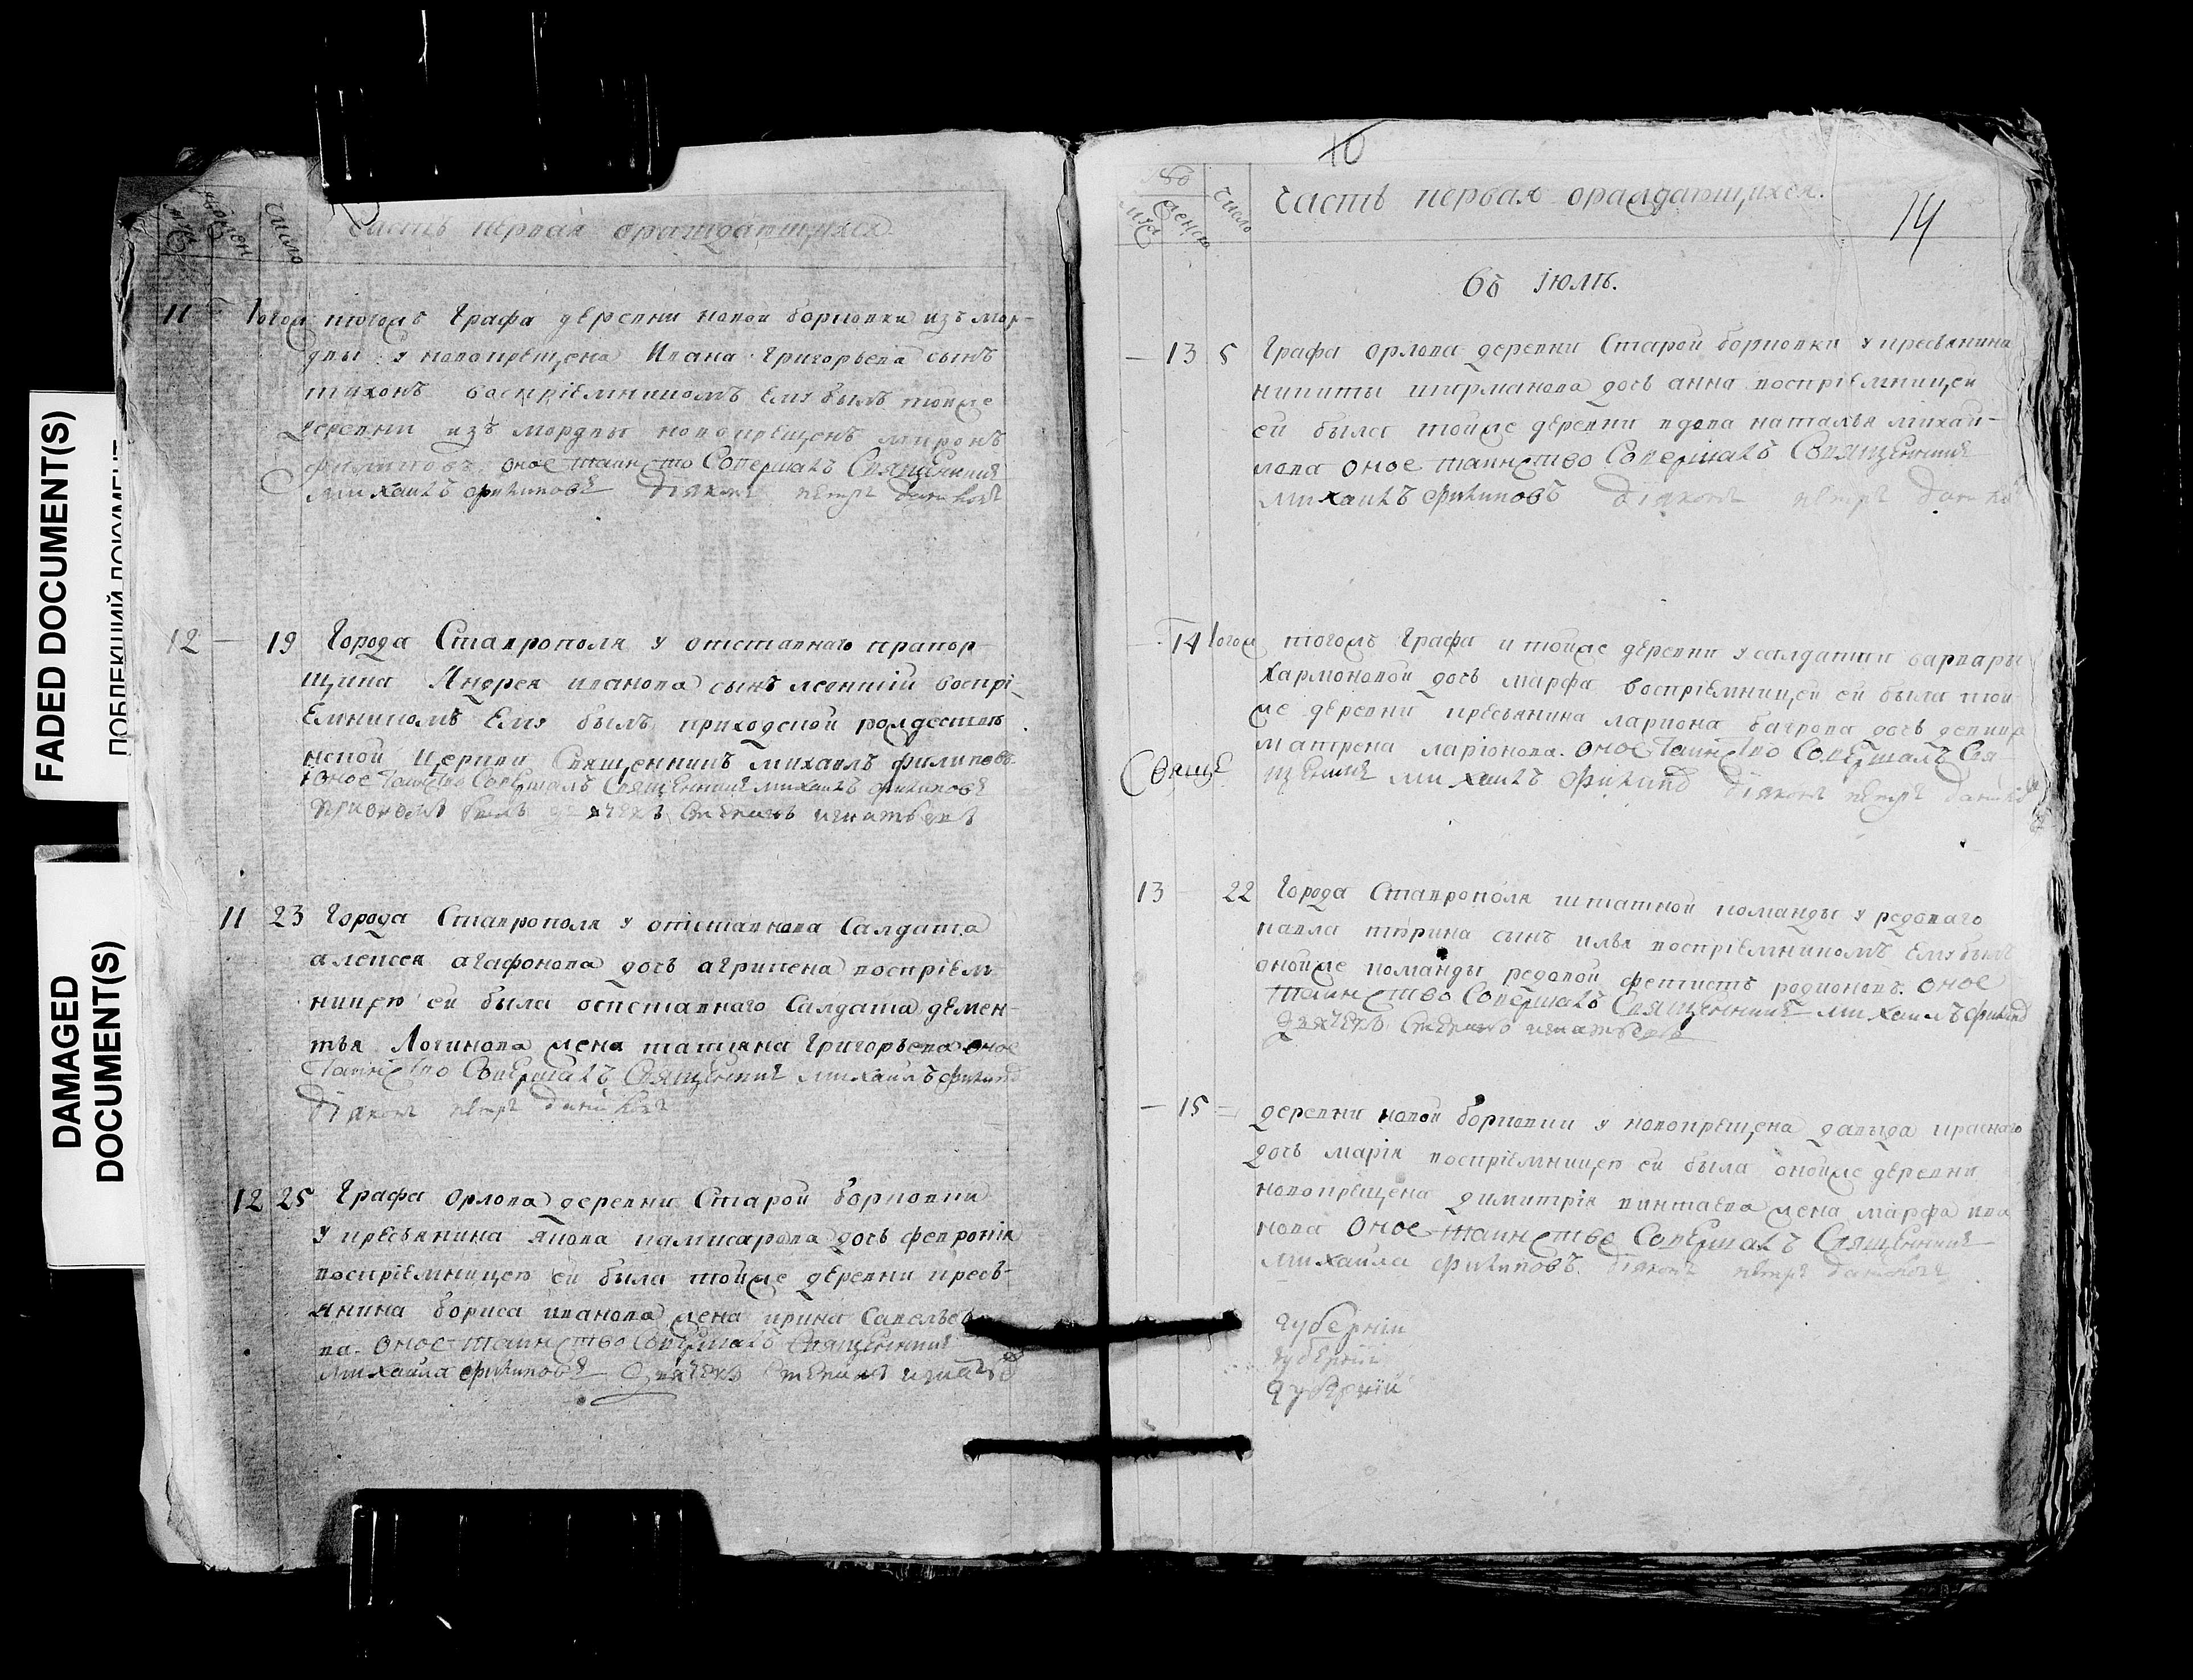 FADED DOCUMENT(S)
DAMAGED
DOCUMENT(S)
число
часть первая ораждающихся
11 тогож графа деревни новой борковки изъ мор-
двы у новокрещена Ивана Григорьева сынъ
тихонъ воспріемникомъ ему былъ тойже
деревни изъ мордвы новокрещенъ миронъ
филиповъ. оное таинство совершалъ Священникъ
михаилъ филиповъ діаконъ петръ
12 — 19 Города Ставрополя у отставнаго прапор-
щика Андрея иванова сынъ
воспрі-
емникомъ ему былъ приходской рождествен
нской церкви Священникъ михаилъ филиповъ
оное таинство совершалъ Священникъ михаилъ филиповъ
былъ дьячекъ степанъ игнатьевъ
11 23 Города Ставрополя у отставнова Салдата
алексея агафонова дочь агрипена воспріем
ницею ей была отставнаго Салдата демен-
тья Логинова жена татьяна Григорьева оное
таинство совершалъ Священникъ михаилъ филип
діаконъ петръ
12 25 Графа орлова деревни Старой борковки
у кресьянина якова дочь феврония
воспріемницею ей была тойже деревни кресь-
янина бориса иванова жена ирина Савелье
ва. оное таинство совершалъ Священникъ
михаила филиповъ дьячекъ степанъ
10
число
часть первая ораждающихся.
14
въ іюлѣ.
— 13 5 Графа орлова деревни Старой борковки у кресьянина
никиты дочь анна воспріемницей
ей была тойже деревни вдова наталья михай-
лова оное таинство совершалъ Священникъ
михаилъ филиповъ діаконъ петръ
— 14 тогожъ графа и тойже деревни у салдатки варвары
хармоновой дочь марфа воспріемницей ей была той
же деревни кресьянина лариона дочь девица
матрена ларіонова. оное таинство совершалъ Свя-
щенникъ михаилъ филип діаконъ петръ
13 — 22 Города Ставрополя штатной команды у редоваго
павла сынъ илья воспріемникомъ ему былъ
онойже команды редовой фектистъ родионовъ. оное
таинство совершалъ Священникъ михаилъ филип
дьячекъ степанъ игнатьевъ
— 15 = деревни новой борковки у новокрещена давыда
дочь марія воспріемницею ей была онойже деревни
новокрещена димитрія жена марфа ива
нова оное таинство совершалъ Священникъ
михаила филиповъ. діаконъ петръ
губерніи
губерніи
губерніи